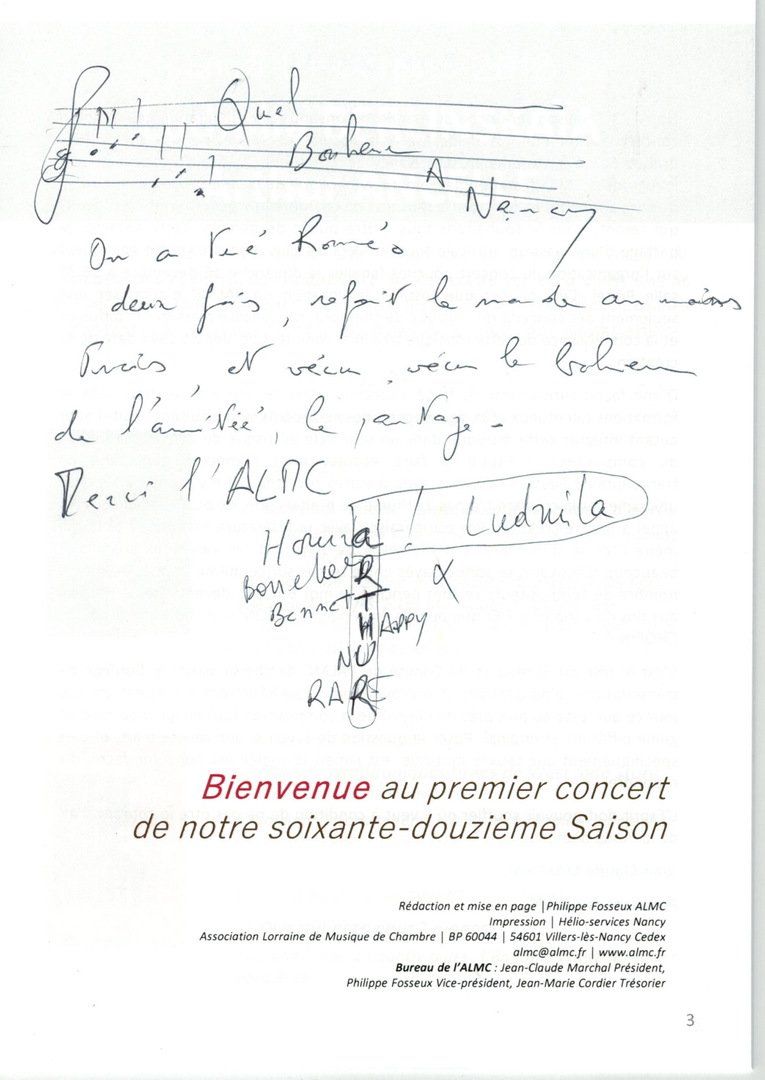 Quel
Bonheur
A
Nancy
On a Roméo
deux fois, refait le monde au moins
trois, et vécu, vécu le bonheur
de l'amitié, le partage -
Merci l'ALMC
! Ludmila
A
R X
Bennett
HAPPY
NU
RARE
Bienvenue au premier concert
de notre soixante-douzième Saison
Rédaction et mise en page | Philippe Fosseux ALMC
Impression | Hélio-services Nancy
Association Lorraine de Musique de Chambre | BP 60044 | 54601 Villers-lès-Nancy Cedex
almc@almc.fr | www.almc.fr
Bureau de l'ALMC : Jean-Claude Marchal Président,
Philippe Fosseux Vice-président, Jean-Marie Cordier Trésorier
3